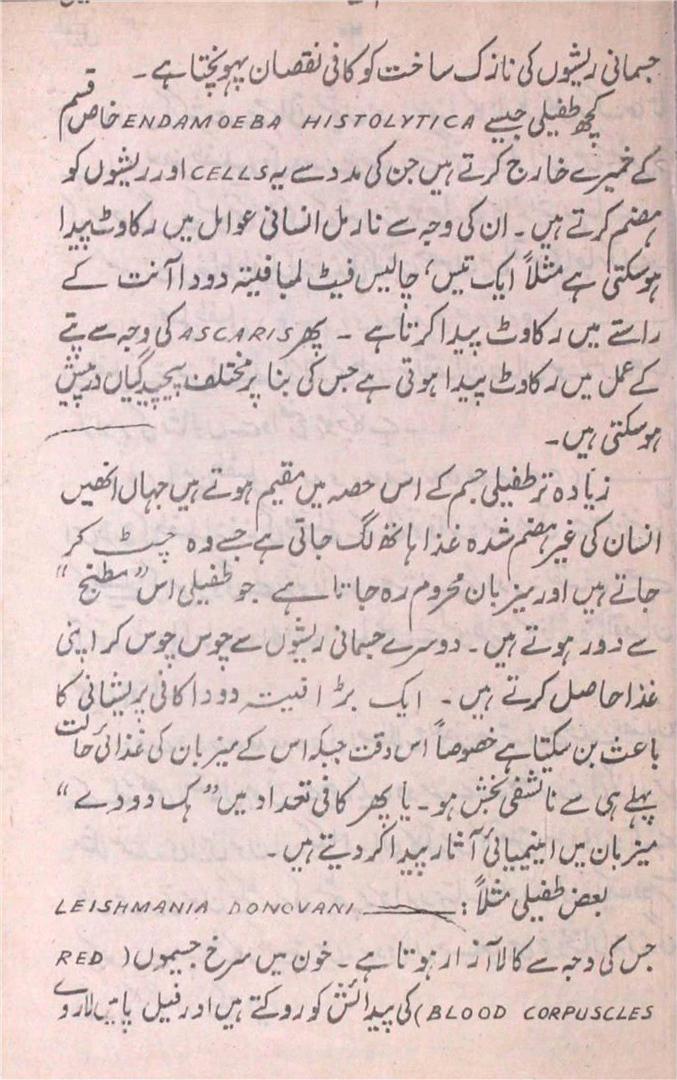 جسمانی ریشوں کی نازک ساخت کو کافی نقصان پہونچتا ہے۔
کچھ طفیلی جیسے ENDAMOEBA HISTOLYTICA خاص قسم
کے خمیرے خارج کرتے ہیں جن کی مدد سے یہ CELLS اور ریشوں کو
ہضم کرتے ہیں۔ ان کی وجہ سے نارمل انسانی عوامل میں رکاوٹ پیدا
ہوسکتی ہے مثلاً ایک تیس، چالیس فیٹ لمبا فیتہ دودا آنت کے
راستے میں رکاوٹ پیدا کرتا ہے ۔ پھر ASCARIS کی وجہ سے پتے
کے عمل میں رکاوٹ پیدا ہوتی ہے جس کی بنا پر مختلف پیچیدگیاں درپیش
ہوسکتی ہیں۔
زیادہ تر طفیلی جسم کے اس حصہ میں مقیم ہوتے ہیں جہاں انھیں
انسان کی غیر ہضم شدہ غذا ہاتھ لگ جاتی ہے جسے وہ چٹ کر
جاتے ہیں اور میزبان محروم رہ جاتا ہے جو طفیلی اس "مطبخ"
سے دور ہوتے ہیں۔ دوسرے جسمانی ریشوں سے چوس چوس کر اپنی
غذا حاصل کرتے ہیں۔ ایک بڑا فیتہ دودا کافی پریشانی کا
باعث بن سکتا ہے خصوصاً اس وقت جبکہ اس کے میزبان کی غذائی حالت
پہلے ہی سے ناتشفی بخش ہو۔ یا پھر کافی تعداد میں "ہک دودے"
میزبان میں اینیمیائی آثار پیدا کردیتے ہیں۔
بعض طفیلی مثلاً: LEISHMANIA DONOVANI
جس کی وجہ سے کالا آزار ہوتا ہے۔ خون میں سرخ جسیموں (RED
BLOOD CORPUSCLES) کی پیدائش کو روکتے ہیں اور فیل پا میں لاروے